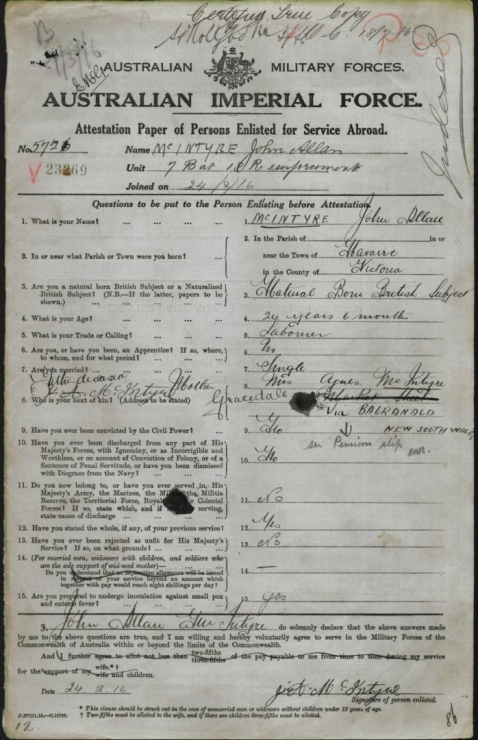 Certified True Copy
AUSTRALIAN MILITARY FORCES.
AUSTRALIAN IMPERIAL FORCE.
Attestation Paper of Persons Enlisted for Service Abroad.
No. 5726 Name McINTYRE John Allan
V 23269 Unit 7 Bat 18 Reinforcements
Joined on 24/2/16
Indexed
Questions to be put to the Person Enlisting before Attestation.
1. What is your Name? 1. McINTYRE John Allan
2. In or near what Parish or Town were you born? 2. In the Parish of in or
near the Town of Navarre
in the County of Victoria
3. Are you a natural born British Subject or a Naturalised
British Subject? (N.B.—If the latter, papers to be
shown.) 3. Natural Born British Subject
4. What is your Age? 4. 24 years 6 month
5. What is your Trade or Calling? 5. Labourer
6. Are you, or have you been, an Apprentice? If so, where,
to whom, and for what period? 6. No
7. Are you married? 7. Single
8. Who is your next of kin? (Address to be stated) 8. Mrs Agnes McIntyre
McIntyre Mother
Gracedale
Market
Via BALRANALD
NEW SOUTH WALES
see Pension slip
9. Have you ever been convicted by the Civil Power? 9. No
10. Have you ever been discharged from any part of His
Majesty's Forces, with Ignominy, or as Incorrigible and
Worthless, or on account of Conviction of Felony, or of a
Sentence of Penal Servitude, or have you been dismissed
with Disgrace from the Navy? 10. No
11. Do you now belong to, or have you ever served in, His
Majesty's Army, the Marines, the Militia, the Militia
Reserve, the Territorial Force, Royal Colonial
Forces? If so, state which, and if serving,
state cause of discharge 11. No
12. Have you stated the whole, if any, of your previous service? 12. Yes
13. Have you ever been rejected as unfit for His Majesty's
Service? If so, on what grounds? 13. No
14. (For married men, widowers with children, and soldiers who
are the sole support of widowed mother)—
Do you understand that no separation allowance will be issued
in respect of your service beyond an amount which
together with pay would reach eight shillings per day? 14. —
15. Are you prepared to undergo inoculation against small pox
and enteric fever? 15. Yes
I, John Allan McIntyre do solemnly declare that the above answers
made by me to the above questions are true, and I am willing and hereby voluntarily agree to serve in the Military Forces of the
Commonwealth of Australia within or beyond the limits of the Commonwealth.
And I further agree to allot not less than two-fifths three-fifths of the pay payable to me from time to time during my service
for the support of my wife.*† wife and children.
Date 24.2.16 J. A. McIntyre
Signature of person enlisted.
* This clause should be struck out in the case of unmarried men or widowers without children under 18 years of age.
† Two-fifths must be allotted to the wife, and if there are children three-fifths must be allotted.
12.